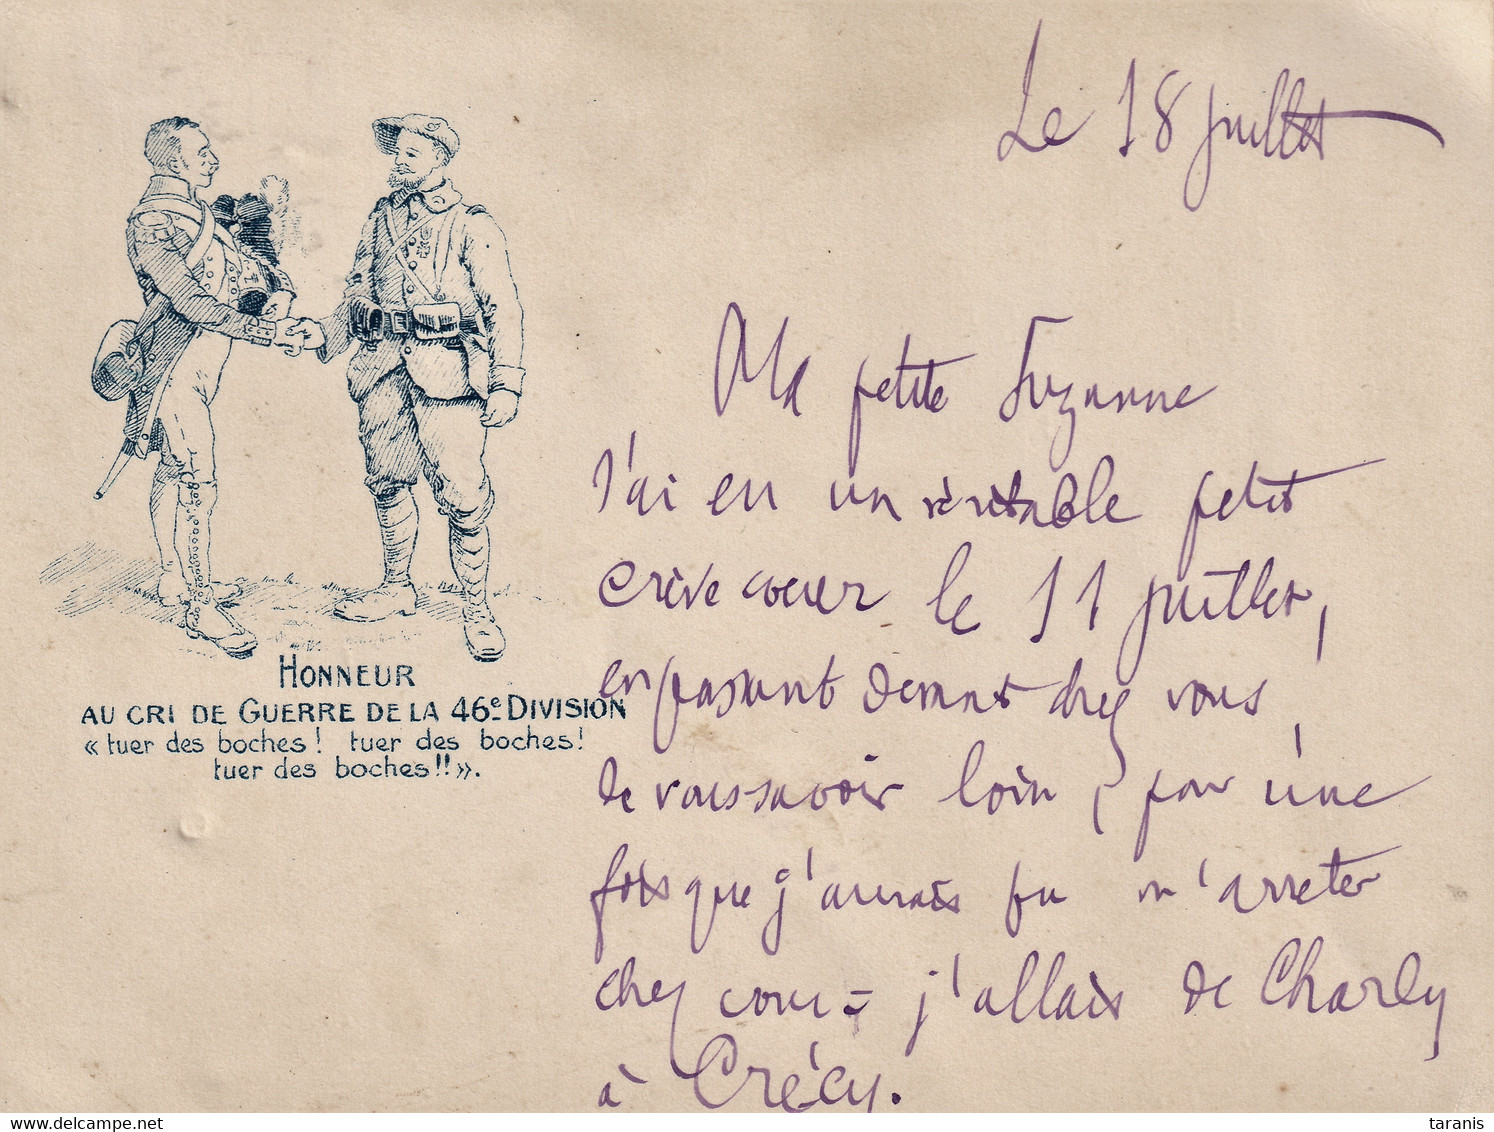 Le 18 juillet
Ma petite Suzanne
J'ai eu un véritable petit
crève coeur le 11 juillet,
en passant devant chez vous,
de vous savoir loin, pour une
fois que j'aurais pu m'arreter
chez vous = j'allais de Charly
à Crécy.
HONNEUR
AU CRI DE GUERRE DE LA 46e DIVISION
« tuer des boches! tuer des boches!
tuer des boches!! ».
www.delcampe.net
taranis